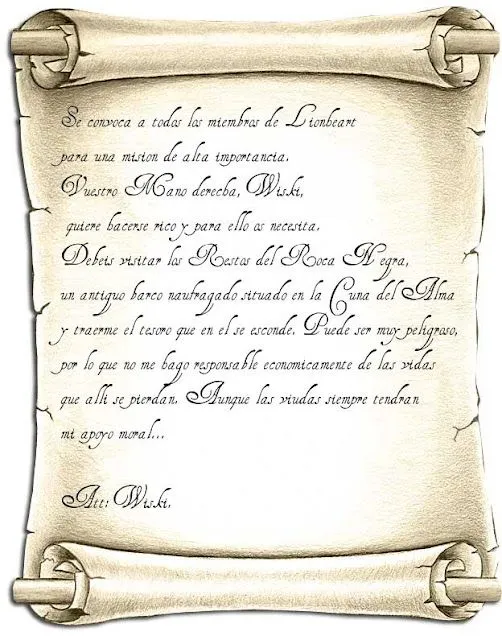 Se convoca a todos los miembros de Lionheart
para una mision de alta importancia.
Vuestro Mano derecha, Wiski,
quiere hacerse rico y para ello os necesita.
Debeis visitar los Restos del Roca Negra,
un antiguo barco naufragado situado en la Cuna del Alma
y traerme el tesoro que en el se esconde. Puede ser muy peligroso,
por lo que no me hago responsable economicamente de las vidas
que alli se pierdan. Aunque las viudas siempre tendran
mi apoyo moral...
Att: Wiski.